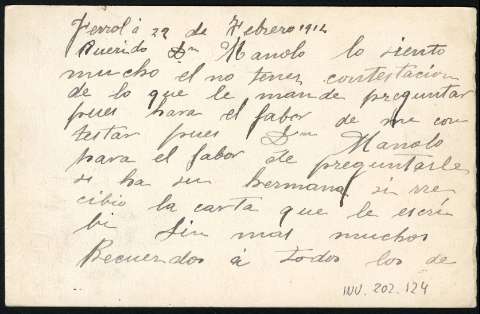 Ferrol á 22 de Febrero 1912
Querido Dn Manolo lo siento
mucho el no tener contestacion
de lo que le mande preguntar
pues hara el fabor de me con
testar pues Dn Manolo
hara el fabor de preguntarle
si ha su hermana si rre
cibio la carta que le escri
bi Sin mas muchos
Recuerdos á todos los de
INV. 202.124